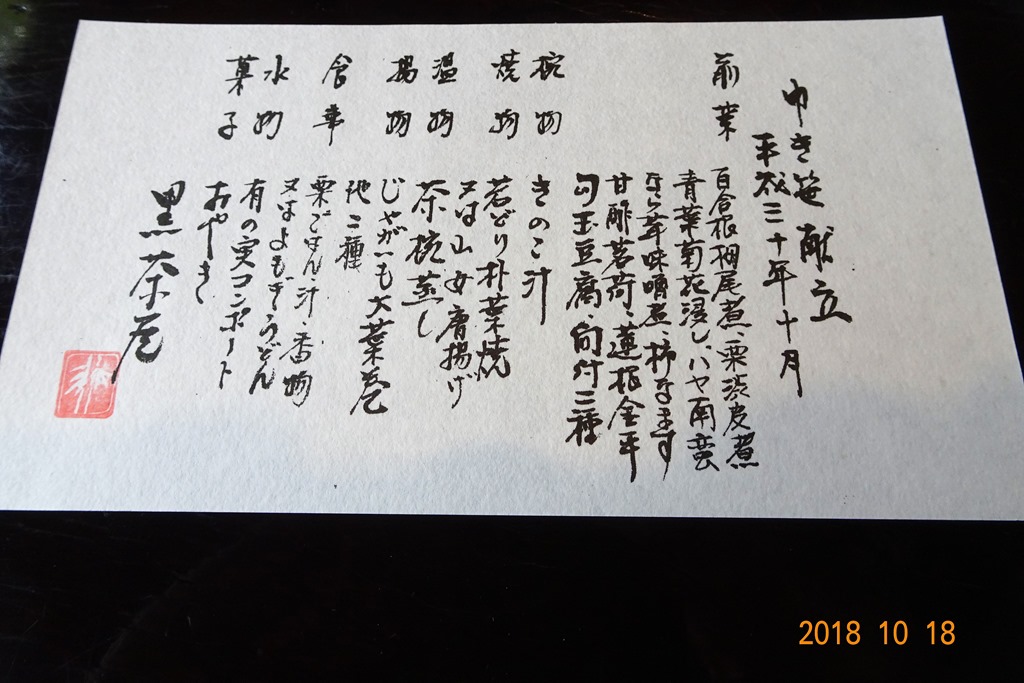 ゆき笹献立
平成三十年十月
前菜
百合根梱尾煮、栗渋皮煮
青菜菊花浸し、ハヤ南蛮
なら茸味噌煮、柿なます
甘酢茗荷、蓮根金平
勾玉豆腐、向付二種
椀物 きのこ汁
焼物 若どり朴葉焼
又は山女唐揚げ
温物 茶椀蒸し
揚物 じゃがいも大葉巻
他二種
食事 栗ごはん、汁、香物
又はよもぎうどん
水物 有の実コンポート
菓子 おやき
黒茶屋
2018 10 18